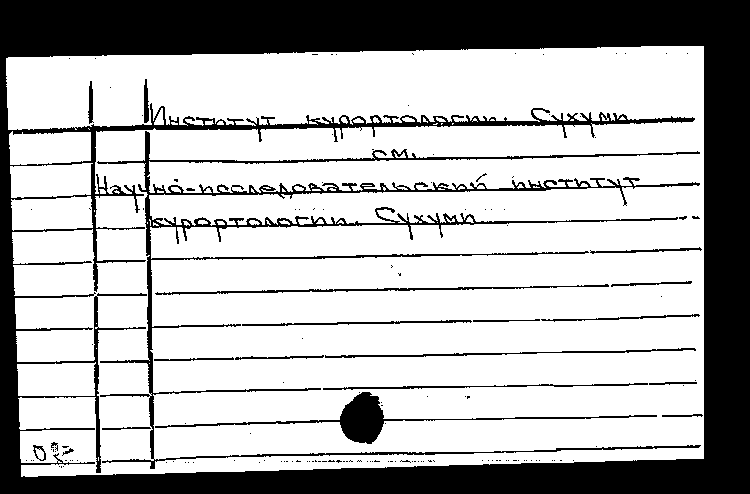 Институт курортологии. Сухуми
см.
Научно-исследовательский институт
курортологии. Сухуми